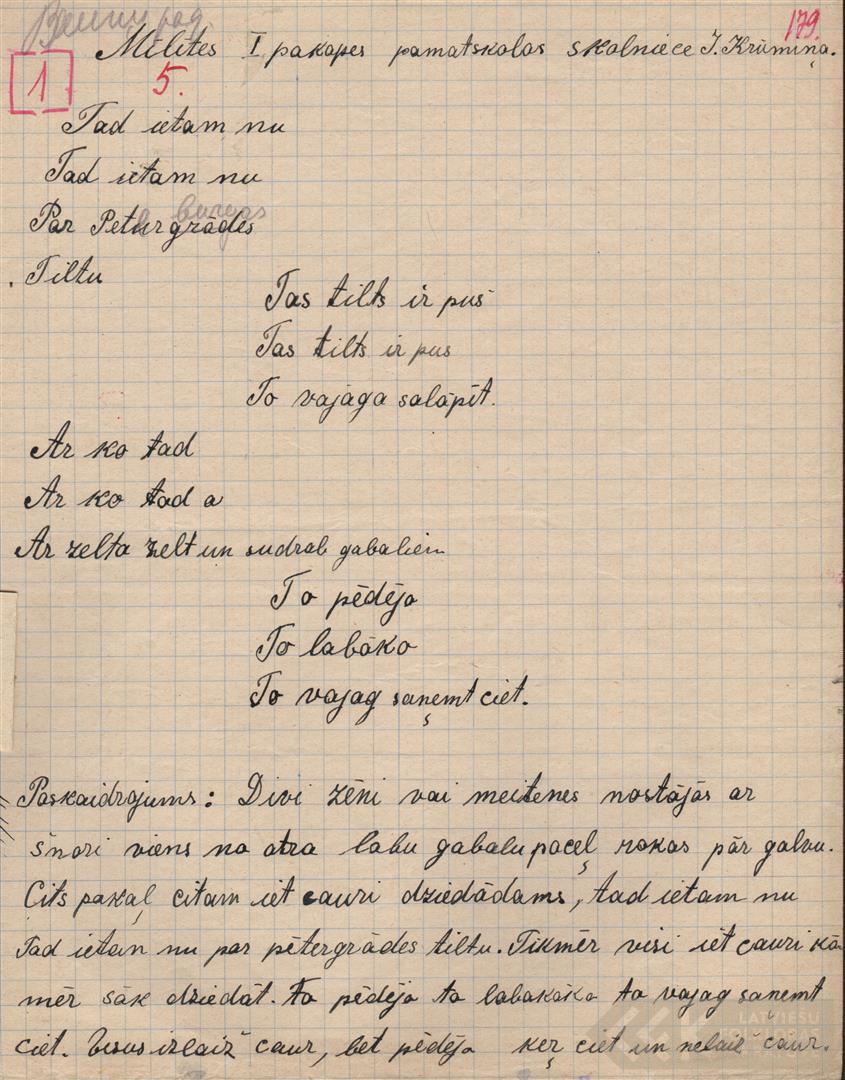 179.
Mīlites I pakāpes pamatskolas skolniece J. Krūmiņa.
1
5.
Tad ietam nu
Tad ietam nu
burgas
Par Peturgrādes
Tiltu
Tas tilts ir puš
Tas tilts ir pus
To vajāga salāpīt.
Ar ko tad
Ar ko tad a
Ar zelta zelt un sudrab gabaliem
To pēdējo
To labāko
To vajag saņemt ciet.
Paskaidrojums: Divi zēni vai meitenes nostājās ar
šnori viens no otra labu gabalu paceļ rokas pār galvu.
Cits pakaļ citam iet cauri dziedādams, tad ietam nu
Tad ietan nu par pētergrādes tiltu. Tikmēr visi iet cauri kā
mēr sāk dziedāt. to pēdējo to labakāko to vajag saņemt
ciet. Visus izlaiž caur, bet pēdējo ķeŗ ciet un nelaiž caur.
LATVIEŠU